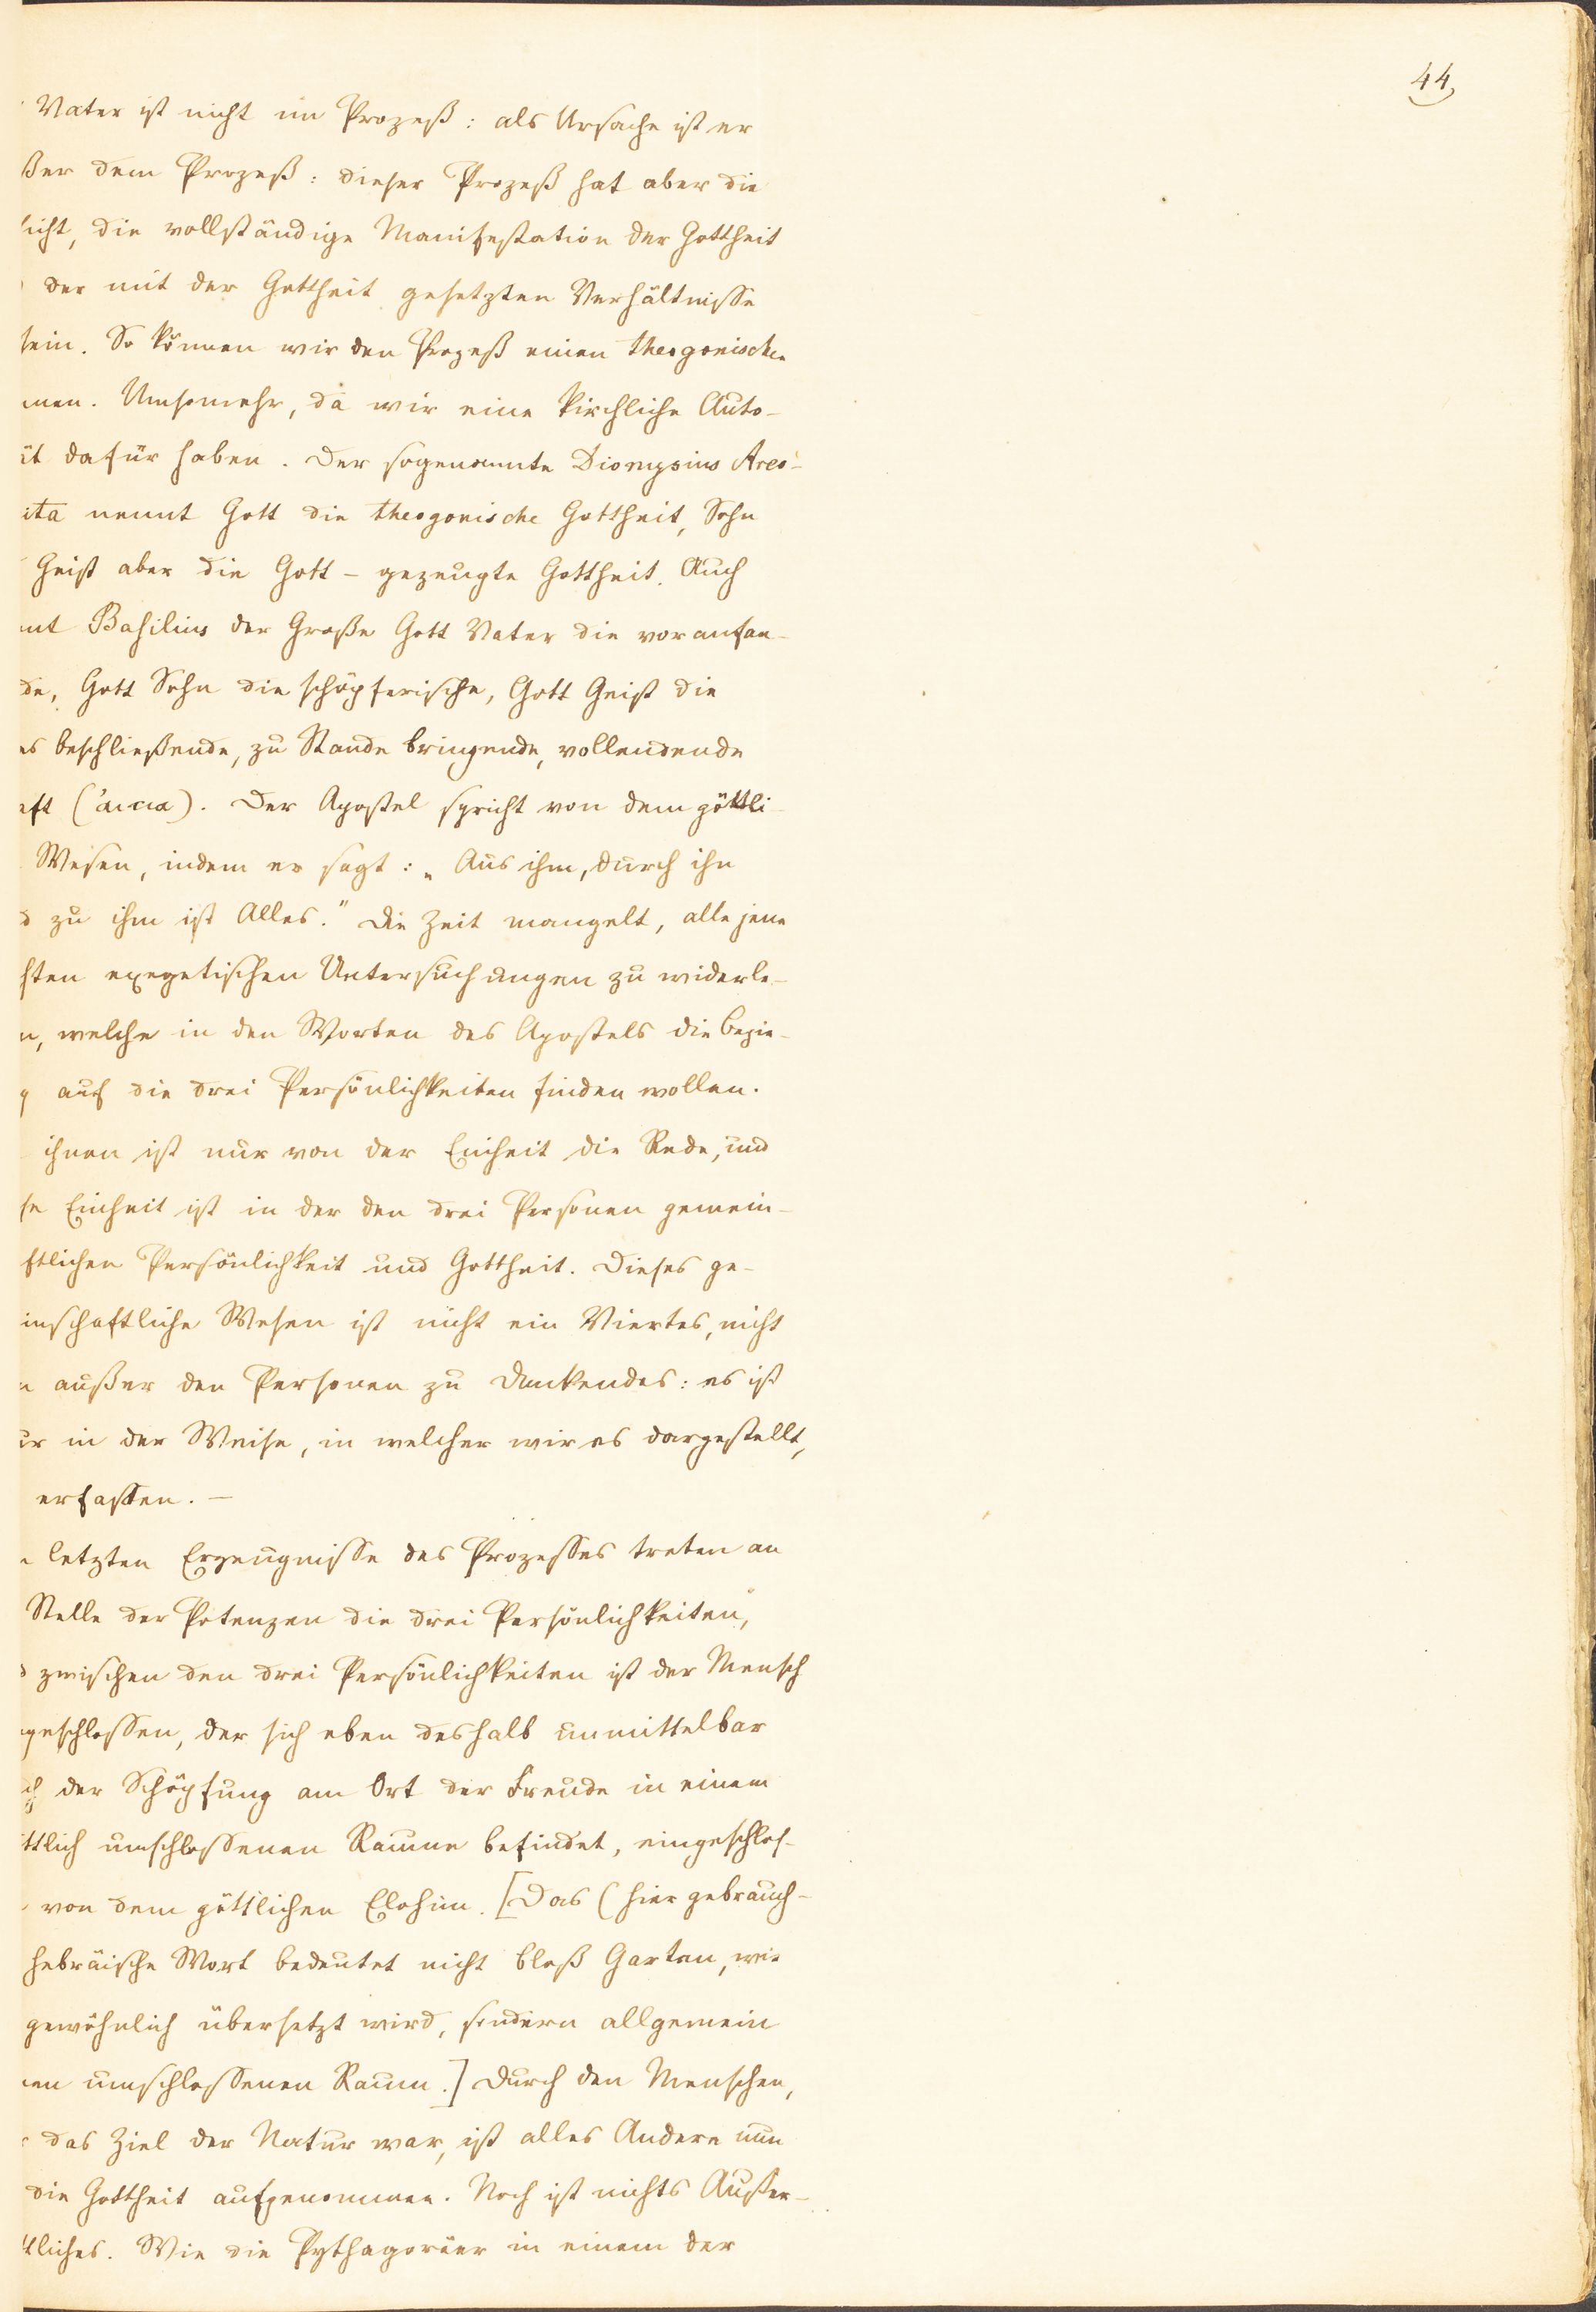 44.
Vater ist nicht im Prozeß: als Ursache ist er
ßer dem Prozeß: dieser Prozeß hat aber die
sicht, die vollständige Manifestation der Gottheit
der mit der Gottheit gesetzten Verhältnisse
sein. So können wir den Prozeß einen theogonischen
nen. Umsomehr, da wir eine kirchliche Auto-
ät dafür haben. Der sogenannte Dionysius Areo-
ita nennt Gott die theogonische Gottheit, Sohn
Geist aber die Gott-gezeugte Gottheit. Auch
nt Basilius der Große Gott Vater die voranfan-
de, Gott Sohn die schöpferische, Gott Geist die
es beschließende, zu Stande bringende, vollendende
aft. Der Apostel spricht von dem göttli-
Wesen, indem er sagt: „Aus ihm, durch ihn
d zu ihm ist Alles." Die Zeit mangelt, alle jene
sten exegetischen Untersuchungen zu widerle-
n, welche in den Worten des Apostels die Bezie-
g auf die drei Persönlichkeiten finden wollen.
ihnen ist nur von der Einheit die Rede, und
se Einheit ist in der den drei Personen gemein-
ftlichen Persönlichkeit und Gottheit. Dieses ge-
inschaftliche Wesen ist nicht ein Viertes, nicht
n außer den Personen zu Denkendes: es ist
ur in der Weise, in welcher wir es dargestellt,
erfassen. —
letzten Erzeugnisse des Prozesses treten an
Stelle der Potenzen die drei Persönlichkeiten,
d zwischen den drei Persönlichkeiten ist der Mensch
geschlossen, der sich eben deshalb unmittelbar
ch der Schöpfung am Ort der Freude in einem
ttlich umschlossenen Raume befindet, eingeschlos-
von dem göttlichen Elohim. [Das (hier gebrauch-
hebräische Wort bedeutet nicht bloß Garten, wie
gewöhnlich übersetzt wird, sondern allgemein
nen umschlossenen Raum.] Durch den Menschen,
das Ziel der Natur war, ist alles Andere nun
die Gottheit aufgenommen. Noch ist nichts Außer-
tliches. Wie die Pythagoräer in einem der